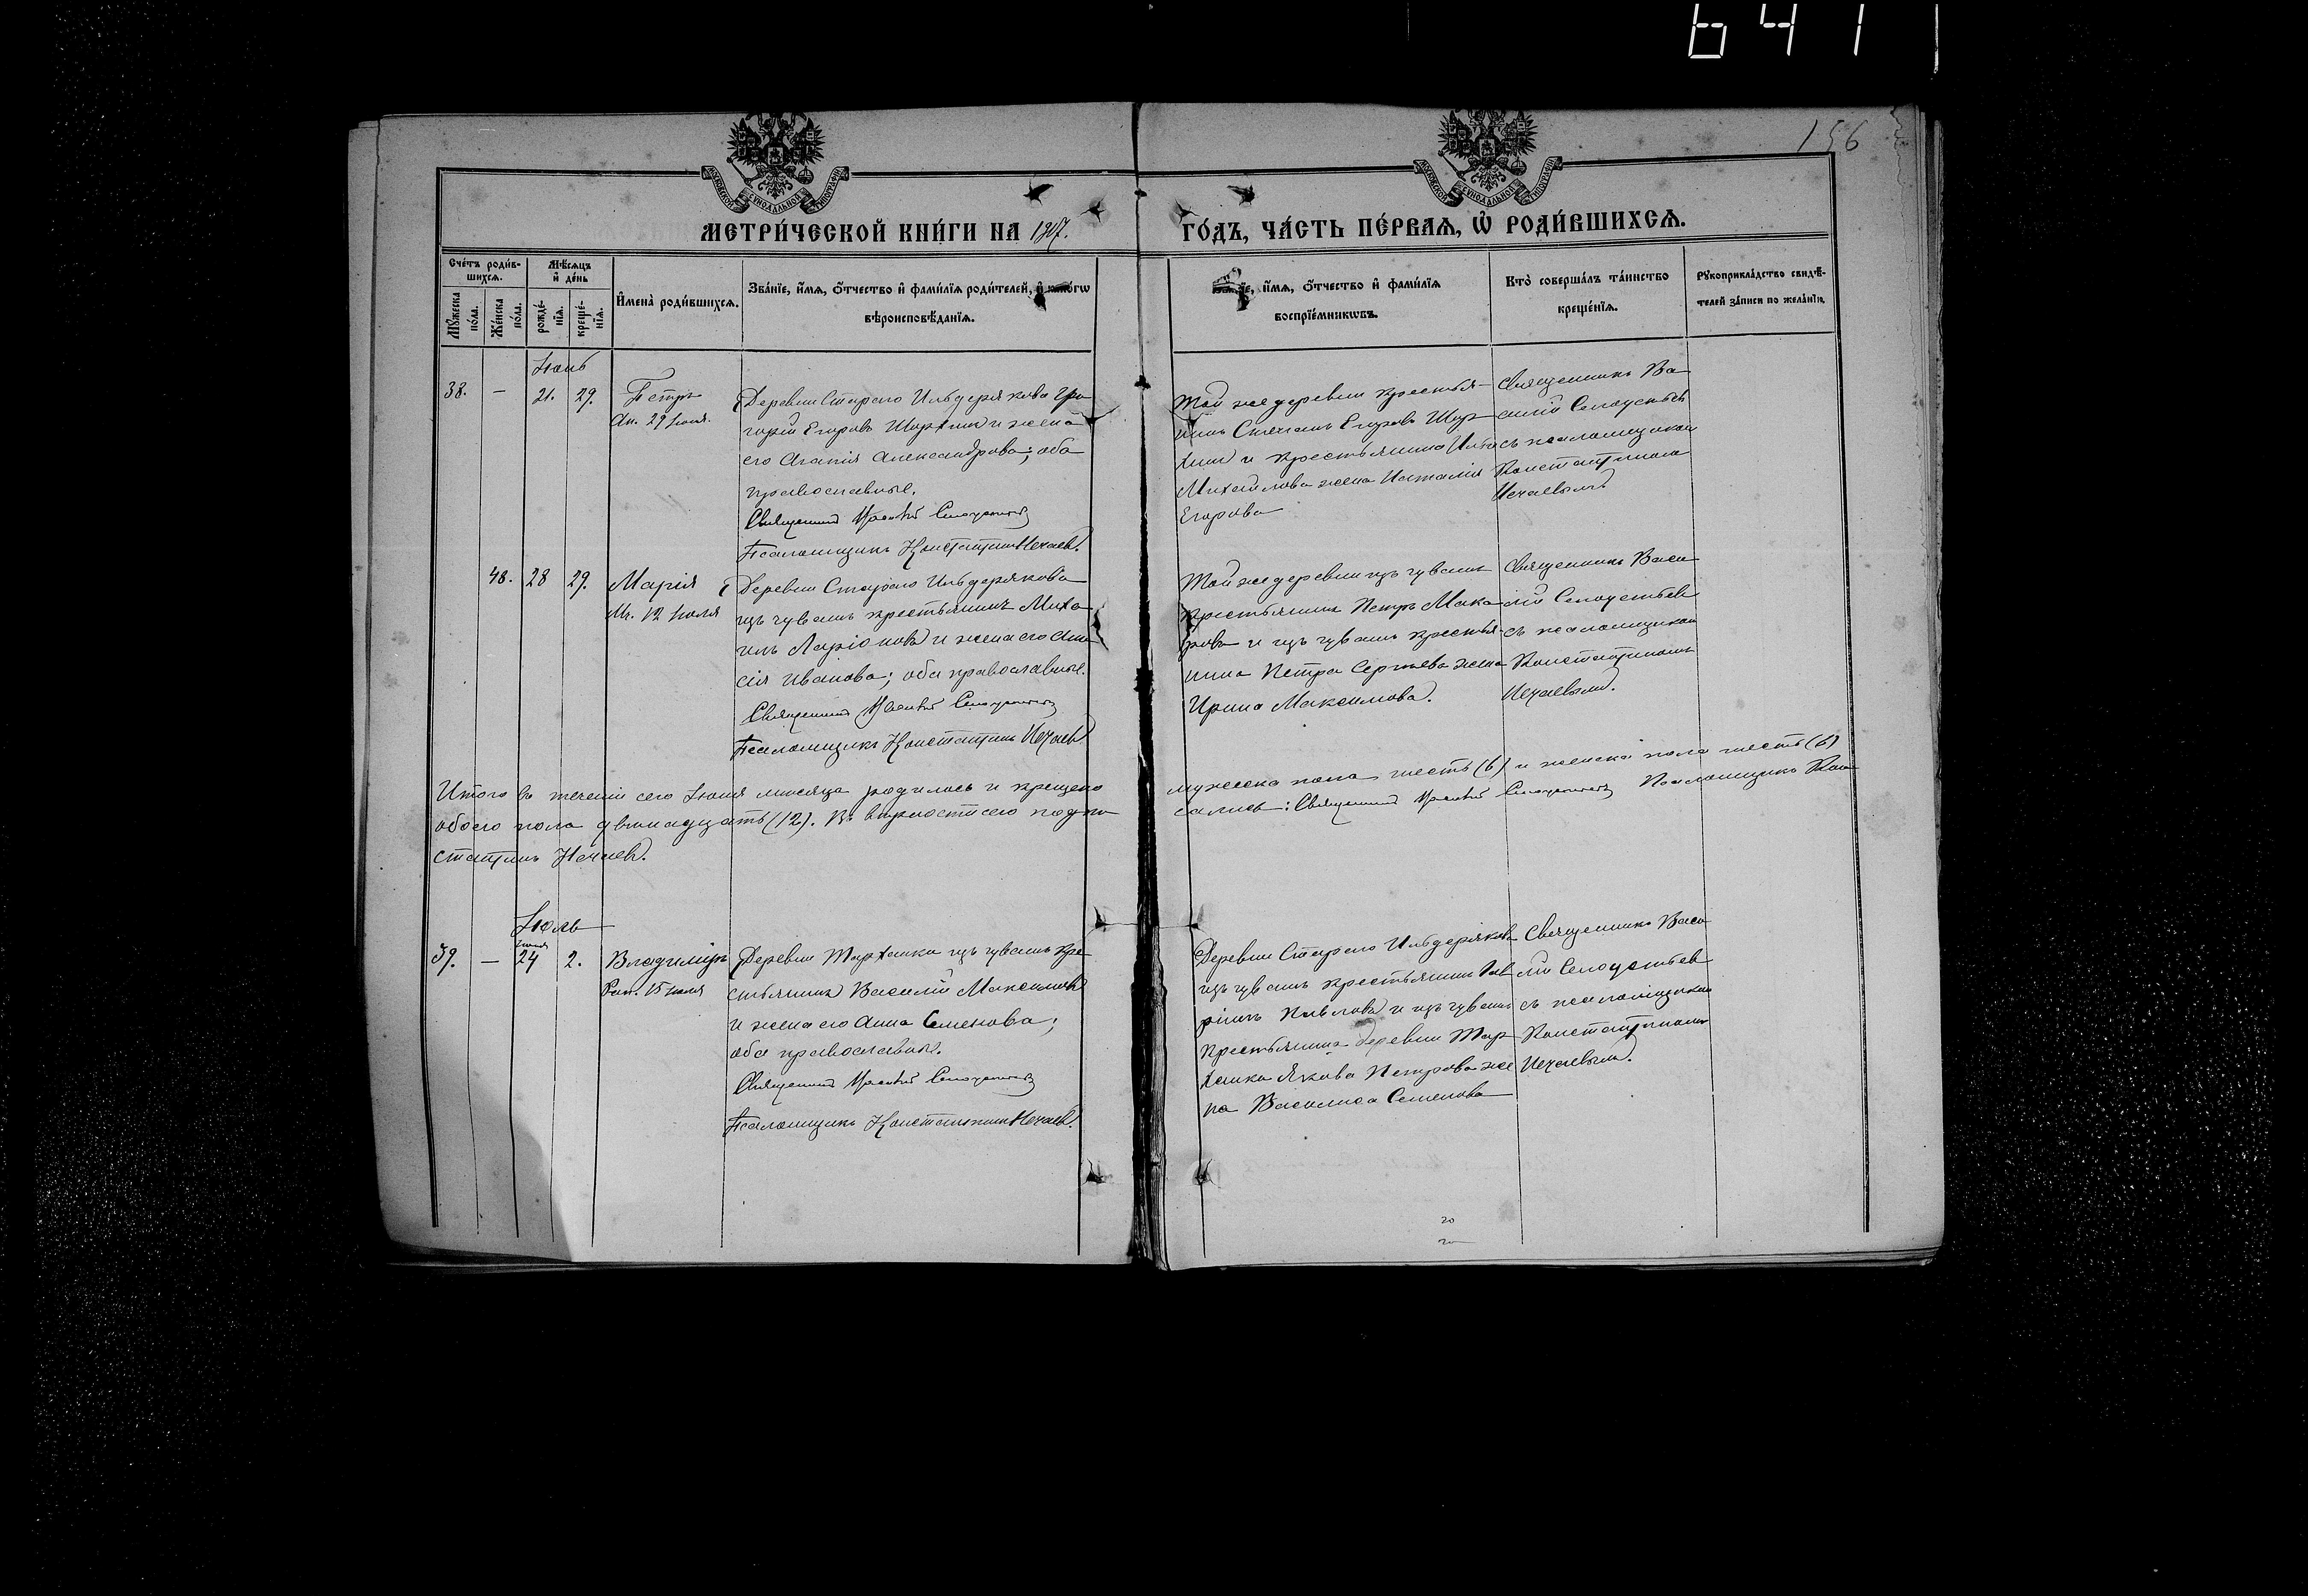 641
156
МОСКОВСКОЙ СУНОДАЛЬНОЙ ТИПОГРАФІИ
МОСКОВСКОЙ СУНОДАЛЬНОЙ ТИПОГРАФІИ
МЕТРИ́ЧЕСКОЙ КНИ́ГИ НА 1907.
ГО́ДЪ, ЧА́СТЬ ПЕ́РВАѦ, Ѽ РОДИ́ВШИХСѦ.
Сче́тъ роди́в-
шихсѧ.
Мꙋ́жеска по́ла.
Же́нска по́ла.
Мѣ́сѧцъ
и҆ де́нь
рожде́-
нїѧ.
креще́-
нїѧ.
И҆мена̀ роди́вшихсѧ.
Зва́нїе, и҆́мѧ, ѻ҆́тчество и҆ фами́лїѧ роди́телей, и҆
вѣроисповѣ́данїѧ.
и҆́мѧ, ѻ҆́тчество и҆ фами́лїѧ
воспрїе́мникѡвъ.
Кто̀ соверша́лъ та́инство
креще́нїѧ.
Рꙋкоприкла́дство свидѣ́-
телей за́писи по жела́нїю.
Іюнь
38. — 21. 29. Петръ
Ап. 29 Іюня.
Деревни Стараго Ильдерякова Гри
горій Егоровъ и жена
его Агапія Александрова; оба
православные.
Священникъ
Псаломщикъ Константинъ Нечаевъ.
Той же деревни крестья-
нинъ Степанъ Егоровъ
и крестьянина
Михайлова жена Наталія
Егорова
Священникъ Ва
силій
съ псаломщикомъ
Константиномъ
Нечаевымъ.
48. 28 29. Марія
Мч. 12 Іюля
Деревни Стараго Ильдерякова
изъ чувашъ крестьянинъ Миха
илъ Ларіоновъ и жена его Ани
сія Иванова; оба православные.
Священникъ
Псаломщикъ Константинъ Нечаевъ.
Той же деревни изъ чувашъ
крестьянинъ Петръ Мака
ровъ и изъ чувашъ крестья-
нина Петра Сергѣева жена
Ирина Максимова.
Священникъ Васи
лій
съ псаломщикомъ
Константиномъ
Нечаевымъ.
Итого въ теченіи сего Іюня мѣсяца родилось и крещено
мужеска пола шесть (6) и женска пола шесть (6)
обоего пола двѣнадцать (12). Въ вѣрности сего подпи
сались: Священникъ Псаломщикъ Кон
стантинъ Нечаевъ.
Іюль
Іюня
39. — 24 2. Владиміръ
Рап. 15 Іюля
Деревни Тарханки изъ чувашъ кре
стьянинъ Василій Максимовъ
и жена его Анна Семенова;
оба православные.
Священникъ
Псаломщикъ Константинъ Нечаевъ.
Деревни Стараго Ильдерякова
изъ чувашъ крестьянинъ Гав
ріилъ Павловъ и изъ чувашъ
крестьянина деревни Тар
ханки Якова Петрова же
на Василиса Семенова
Священникъ Васи
лій
съ псаломщикомъ
Константиномъ
Нечаевымъ.